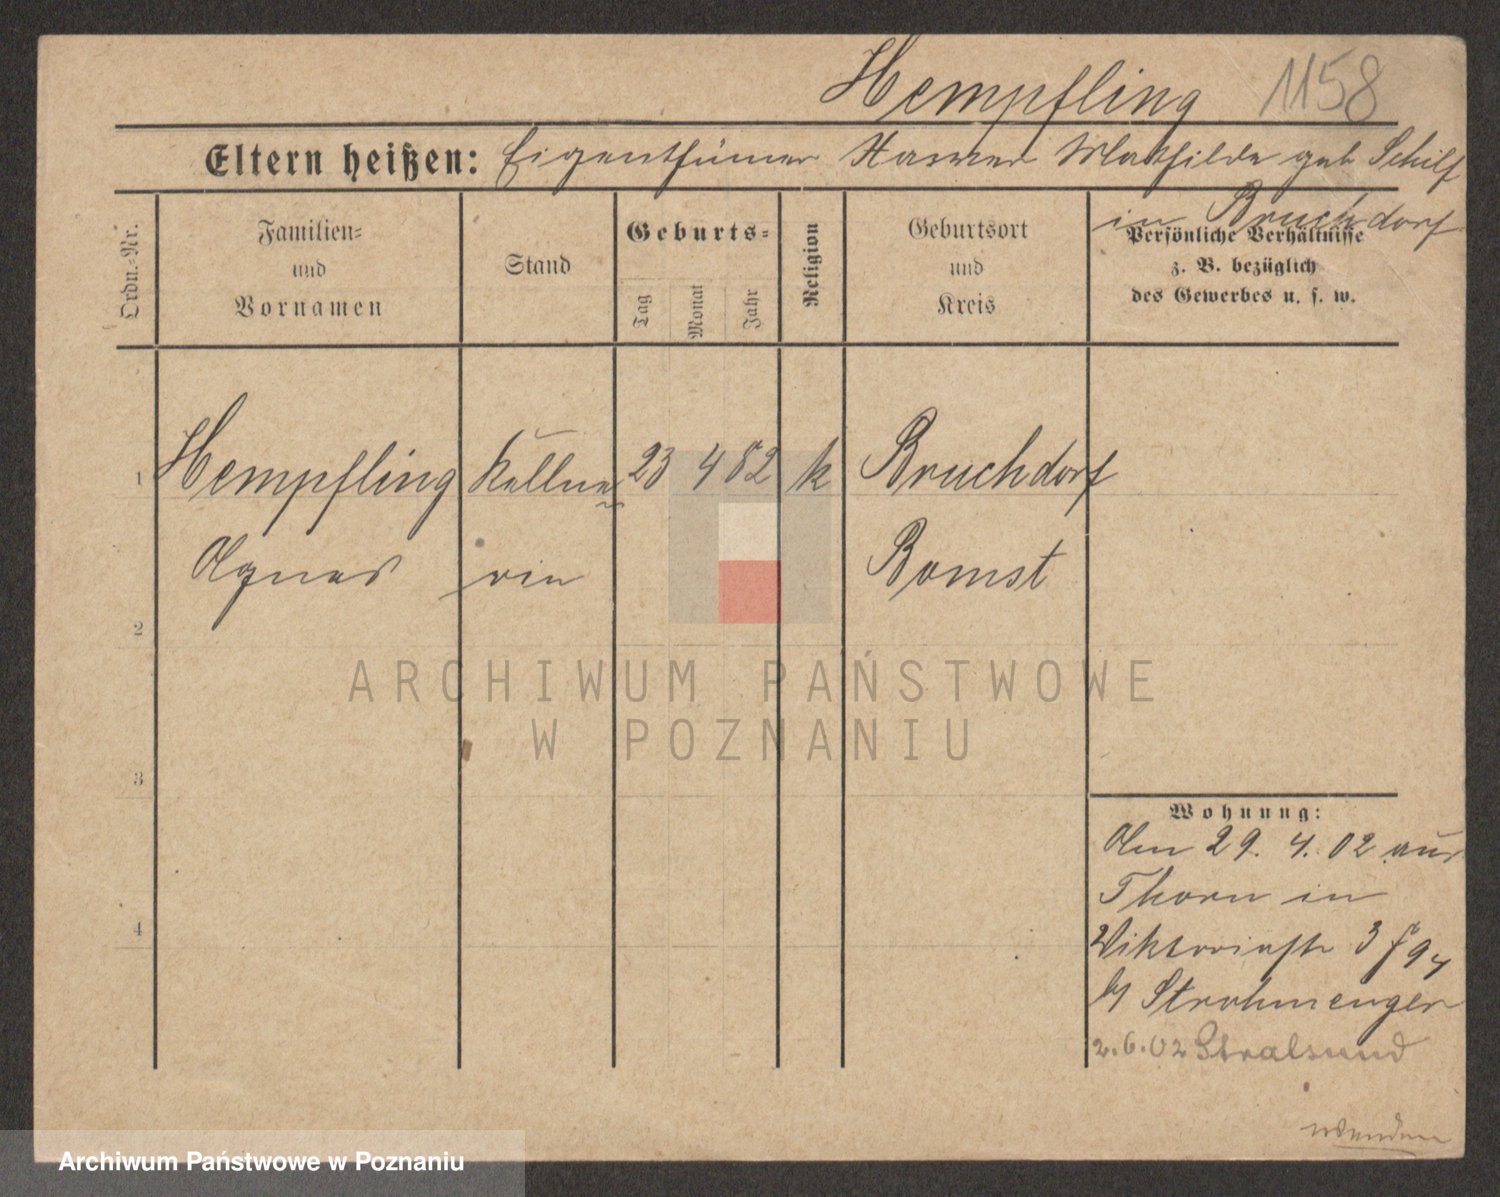 Hempfling 1158
Eltern heißen: Eigenthümer Mathilde geb Schilf
in Bruchdorf
Ordn.-Nr.
Familien-
und
Vornamen
Stand
Geburts-
Tag
Monat
Jahr
Religion
Geburtsort
und
Kreis
Persönliche Verhältnisse
z. B. bezüglich
des Gewerbes u. s. w.
1
Hempfling Kellne 23 4 82 k Bruchdorf
Agnes rin Bomst
2
ARCHIWUM PAŃSTWOWE
W POZNANIU
3
Wohnung:
Am 29. 4. 02 aus
Thorn in
4
Viktoriastr
bei Strohmenger
2.6.02 Stralsund
wenden
Archiwum Państwowe w Poznaniu